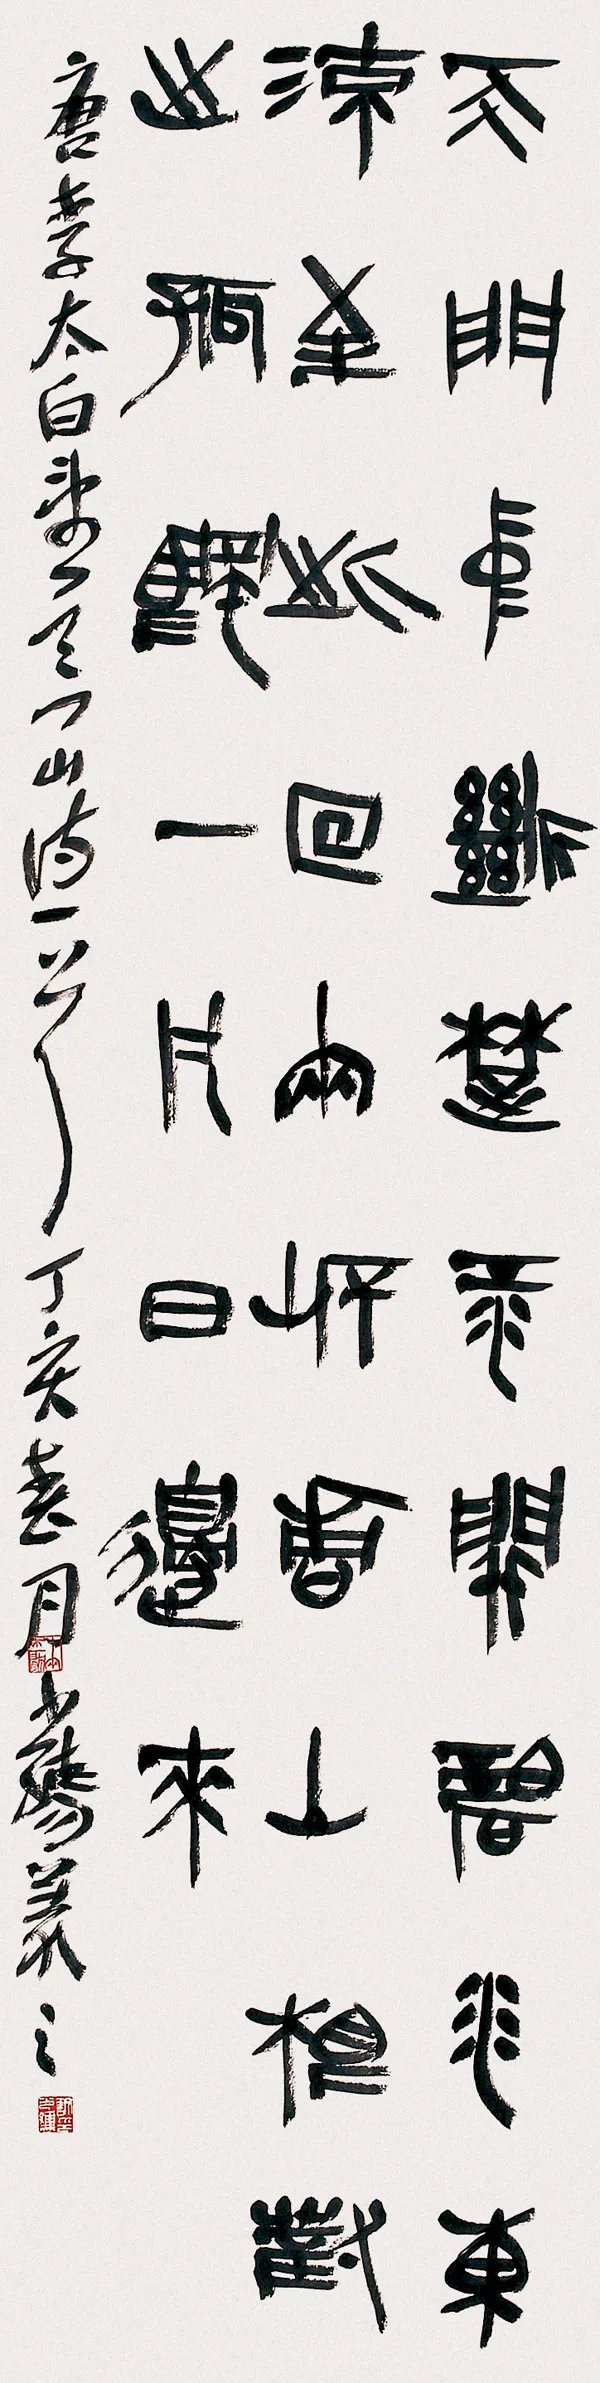 天門中斷楚江開碧水東
流至此回兩岸青山相對
出孤帆一片日邊來
唐李太白望天門山詩一首丁亥春月